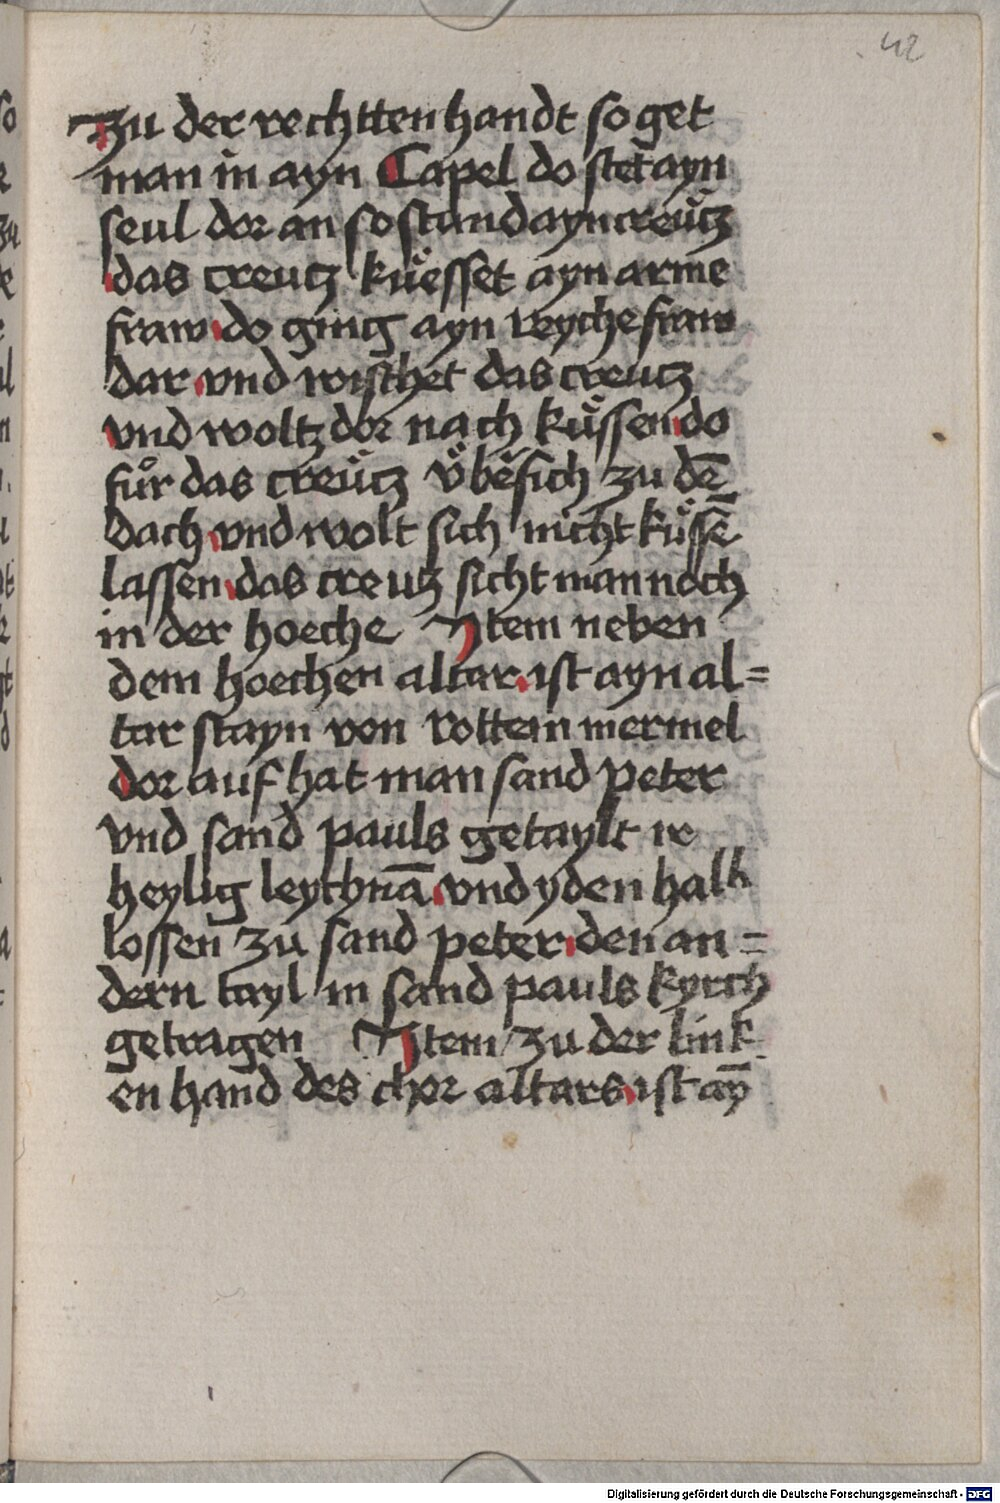 42
Zu der rechtten handt so get
man in ayn Capel do stet ayn
seul dor an so stund ayn creütz
das creutz küesset ayn arme
fraw do ging ayn reyche fraw
dar vnd wischet das creutz
vnd woltz dor nach küssen do
fůr das creütz v̈bersich zu dē
dach vnd wolt sich nicht küssē
lassen das creutz sicht man noch
in der hoeche Item neben
dem hoechen altar ist ayn al=
tar stayn von rottem mermel
dor auf hat man sand peter
vnd sand pauls getaylt ir
heylig leychnā vnd yden halb
lossen zu sand peter den an=
dern tayl in sand pauls kyrch
getragen Item zu der link
en hand des chor altars ist aȳ
Digitalisierung gefördert durch die Deutsche Forschungsgemeinschaft - DFG